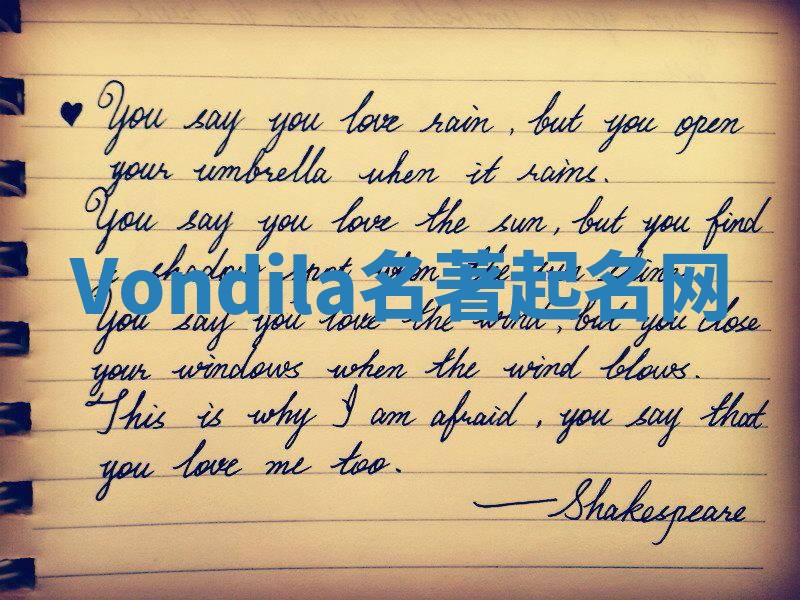 You say you love rain, but you open
your umbrella when it rains.
You say you love the sun, but you find
a shadow spot when the sun shines.
Vondila名著起名网
You say you love the wind, but you close
your windows when the wind blows.
This is why I am afraid, you say that
you love me too.
—Shakespeare